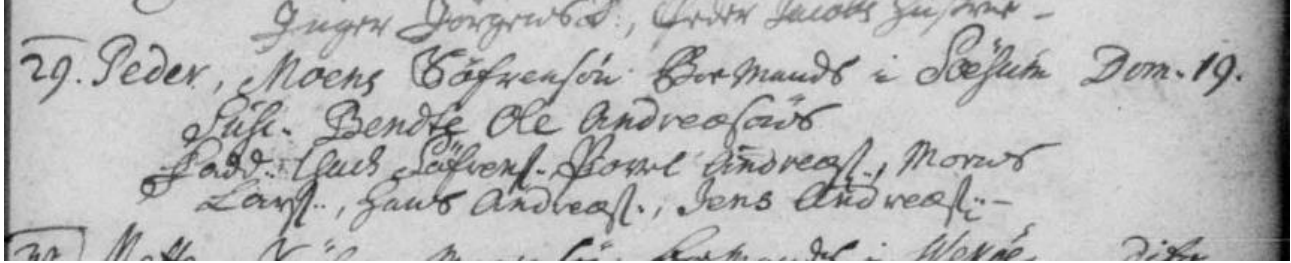 Inger Jörgens D., Peder Jacobs Hustrue -
29. Peder, Moens Söfrensön Boemands i Söesum Dom. 19.
Susc. Bendte Ole Andreæsöns
Fadd. Söfrens. Povel Andreæs., Moens
Lars., Hans Andreæs., Jens Andreæs. -
Mette, Boemands i dito